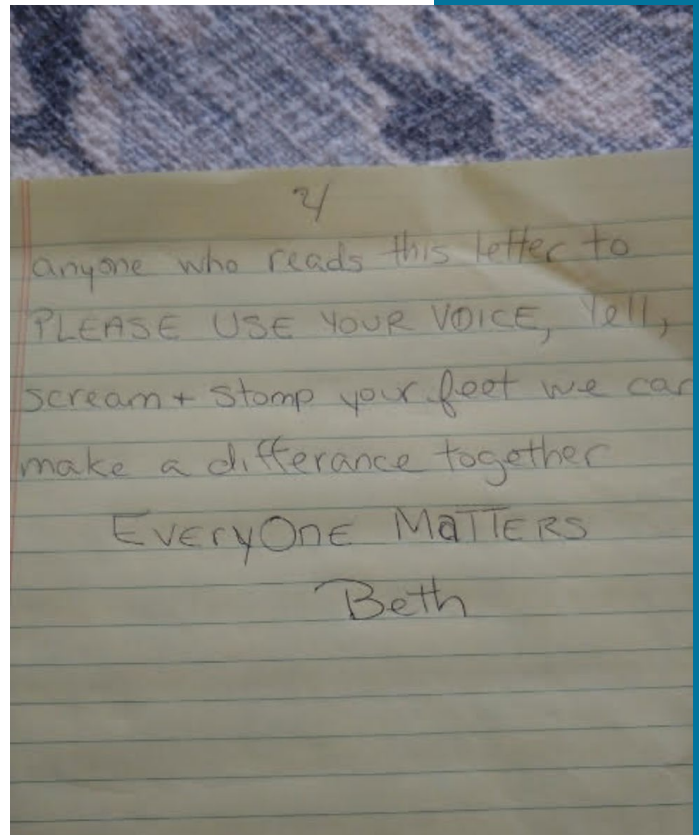 anyone who reads this letter to
PLEASE USE YOUR VOICE, Yell,
scream + stomp your feet we can
make a differance together
EVERYONE MATTERS
Beth